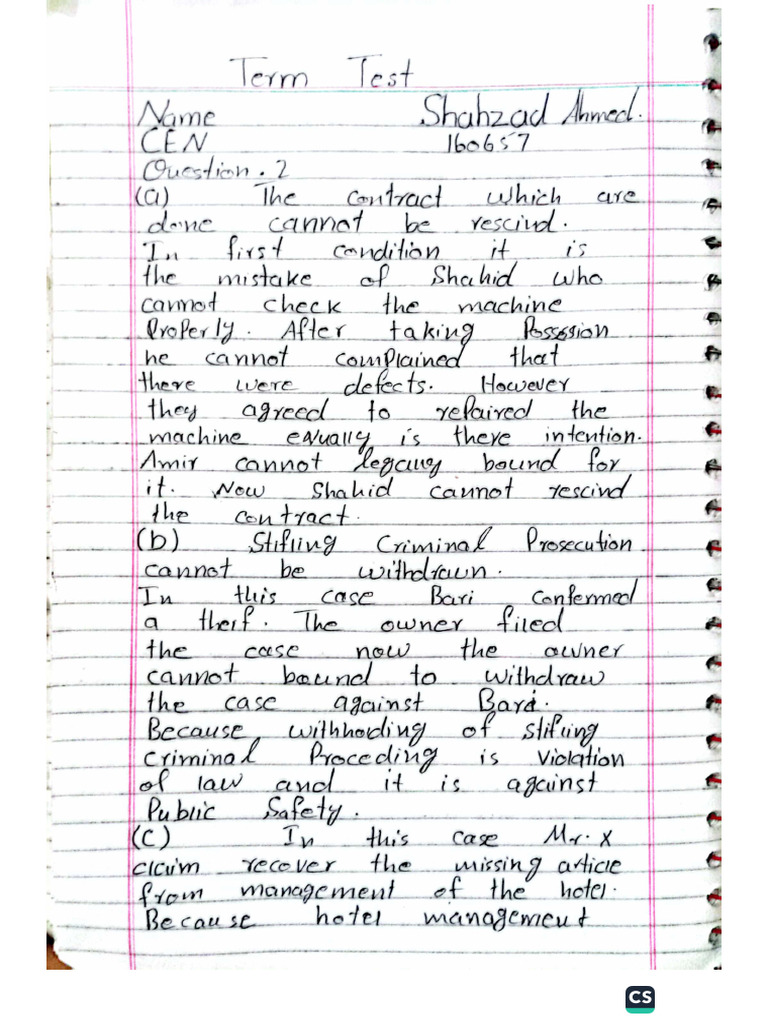 Term Test
Name Shahzad Ahmed.
CEN 160657
Question.2
(a) The contract which are
done cannot be rescind.
In first condition it is
the mistake of Shahid who
cannot check the machine
Properly. After taking Possession
he cannot complained that
there were defects. However
they agreed to repaired the
machine equally is there intention.
Amir cannot legally bound for
it. Now Shahid cannot rescind
the contract.
(b) Stifling Criminal Prosecution
cannot be withdrawn.
In this case Bari confermed
a theif. The owner filed
the case now the owner
cannot bound to withdraw
the case against Bari.
Because withholding of stifling
criminal Proceding is violation
of law and it is against
Public Safety.
(C) In this case Mr. X
claim recover the missing article
from management of the hotel.
Because hotel management
CS